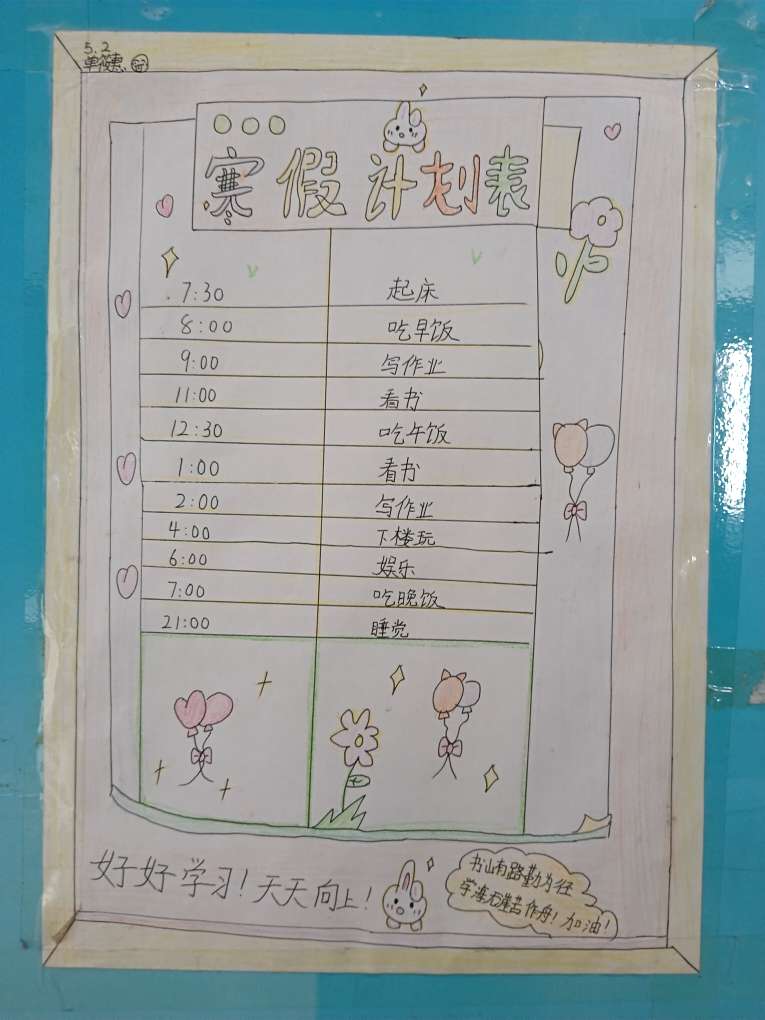 5.2
寒假计划表
7:30 起床
8:00 吃早饭
9:00 写作业
11:00 看书
12:30 吃午饭
1:00 看书
2:00 写作业
4:00 下楼玩
6:00 娱乐
7:00 吃晚饭
21:00 睡觉
好好学习!天天向上!
书山有路勤为径
学海无涯苦作舟!加油!